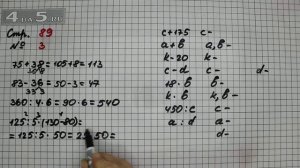 4 - 5
Стр. 89
№ 3
75 + 38 = 105 + 8 = 113
83 - 36 = 50 - 3 = 47
33 3
360 : 4 · 6 = 90 · 6 = 540
125 : 5 · (130 - 80) =
= 125 : 5 · 50 = 25 · 50 =
c + 175 c -
a + b a, b -
k - 20 k -
c - d c - d -
18 · b b -
k · b k, b -
450 : c c -
a : d a -
d -